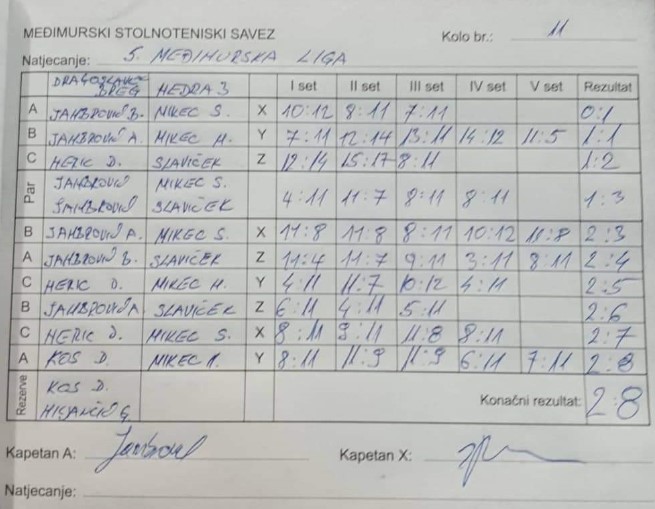 MEĐIMURSKI STOLNOTENISKI SAVEZ
Kolo br.: 11
Natjecanje: 5. MEĐIMURSKA LIGA
DRAGOSLAVEC BREG HEDRA 3 I set II set III set IV set V set Rezultat
A JAMBROVIĆ B. MIKEC S. X 10:12 8:11 7:11 0:1
B JAMBROVIĆ A. MIKEC M. Y 7:11 12:14 13:11 14:12 11:5 1:1
C HERIC D. SLAVIČEK Z 12:14 15:17 8:11 1:2
Par JAMBROVIĆ MIKEC S.
JAMBROVIĆ SLAVIČEK 4:11 11:7 8:11 8:11 1:3
B JAMBROVIĆ A. MIKEC S. X 11:8 11:8 8:11 10:12 11:8 2:3
A JAMBROVIĆ B. SLAVIČEK Z 11:4 11:7 9:11 3:11 8:11 2:4
C HERIC D. MIKEC M. Y 4:11 11:7 10:12 4:11 2:5
B JAMBROVIĆ A. SLAVIČEK Z 6:11 4:11 5:11 2:6
C HERIC D. MIKEC S. X 8:11 9:11 11:8 8:11 2:7
A KOS D. MIKEC M. Y 8:11 11:9 11:9 6:11 7:11 2:8
Rezerve KOS D.
G.
Konačni rezultat: 2:8
Kapetan A: Kapetan X:
Natjecanje: